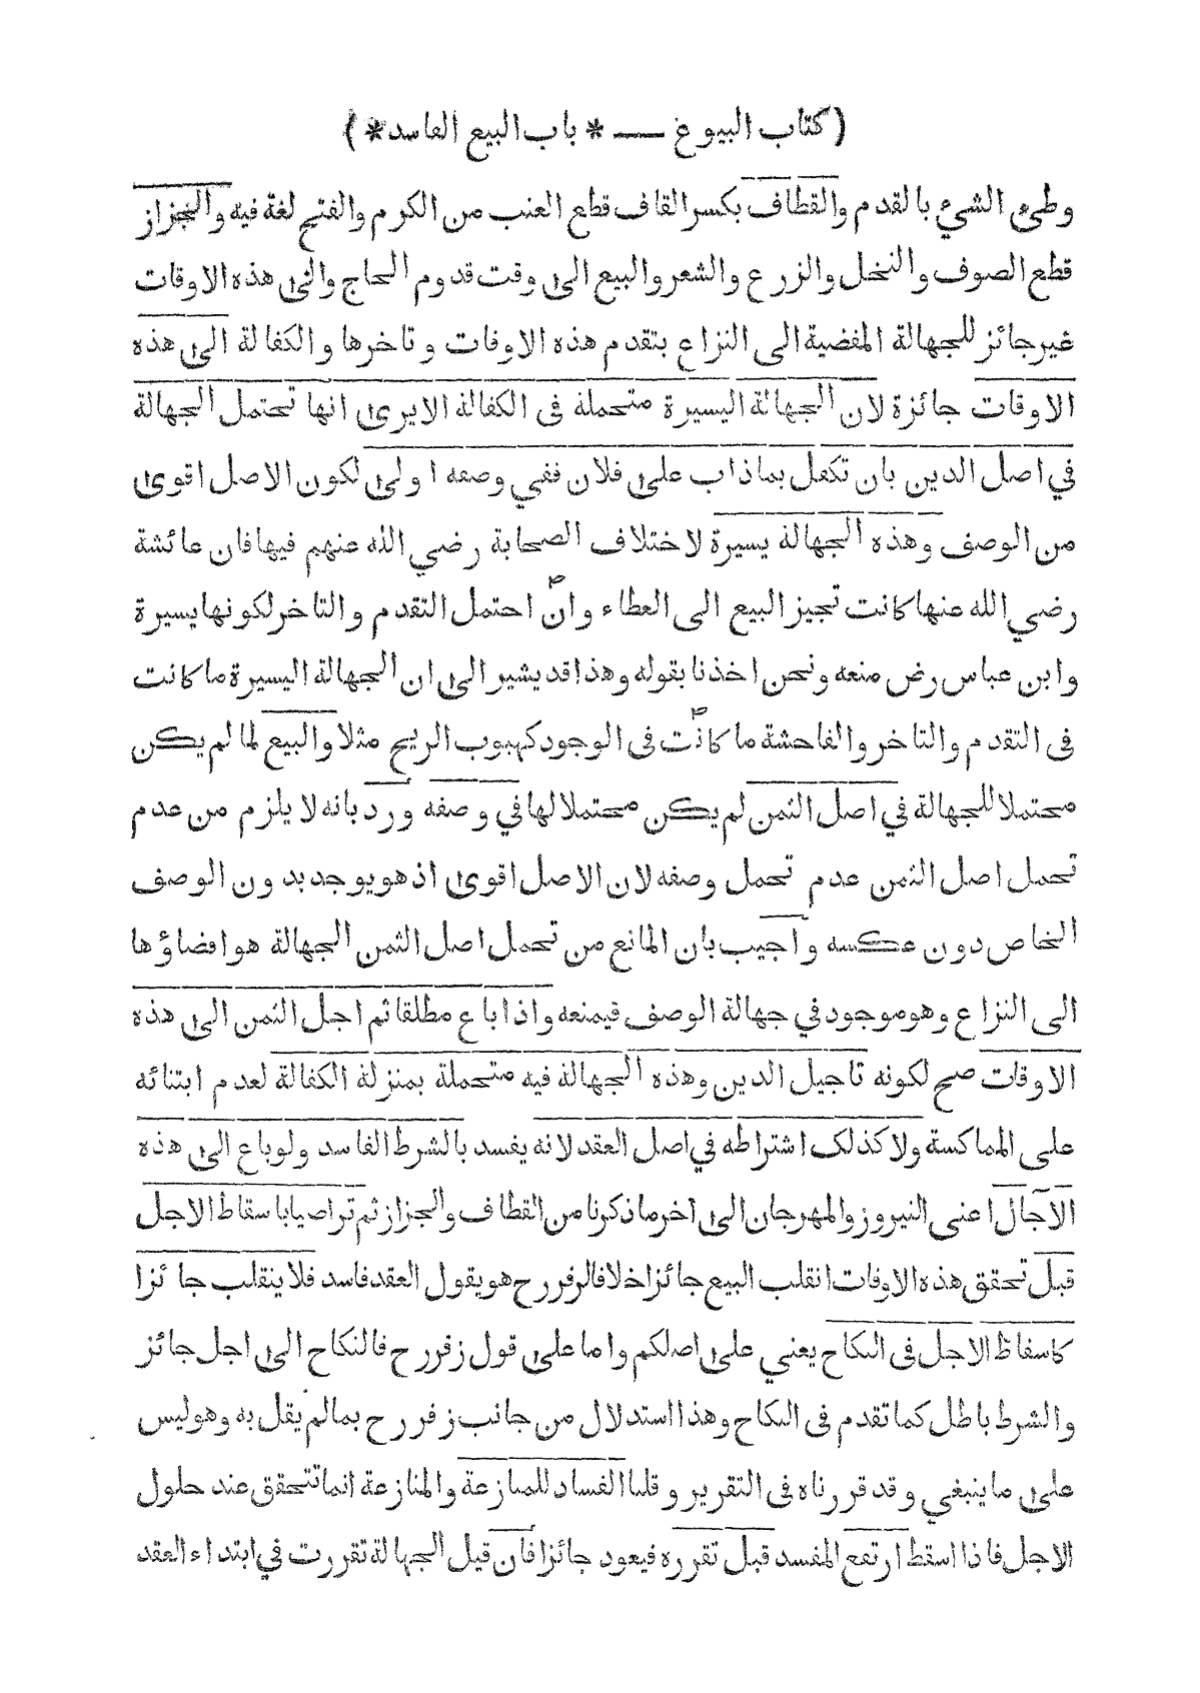 ( كتاب البيوع — * باب البيع الفاسد * )
وطئ الشيء بالقدم والقطاف بكسر القاف قطع العنب من الكرم والفتح لغة فيه والجزاز
قطع الصوف والنخل والزرع والشعر والبيع الى وقت قدوم الحاج والى هذه الاوقات
غير جائز للجهالة المفضية الى النزاع بتقدم هذه الاوقات وتاخرها والكفالة الى هذه
الاوقات جائزة لان الجهالة اليسيرة متحملة فى الكفالة الا يرى انها تحتمل الجهالة
في اصل الدين بان تكفل بماذاب على فلان ففي وصفه اولى لكون الاصل اقوى
من الوصف وهذه الجهالة يسيرة لاختلاف الصحابة رضي الله عنهم فيها فان عائشة
رضي الله عنها كانت تجيز البيع الى العطاء وان احتمل التقدم والتاخر لكونها يسيرة
وابن عباس رض منعه ونحن اخذنا بقوله وهذا قد يشير الى ان الجهالة اليسيرة ما كانت
فى التقدم والتاخر والفاحشة ما كانت فى الوجود كهبوب الريح مثلا والبيع لما لم يكن
محتملا للجهالة في اصل الثمن لم يكن محتملا لها في وصفه ورد بانه لا يلزم من عدم
تحمل اصل الثمن عدم تحمل وصفه لان الاصل اقوى اذ هو يوجد بدون الوصف
الخاص دون عكسه واجيب بان المانع من تحمل اصل الثمن الجهالة هو افضاؤها
الى النزاع وهو موجود في جهالة الوصف فيمنعه واذا باع مطلقا ثم اجل الثمن الى هذه
الاوقات صح لكونه تاجيل الدين وهذه الجهالة فيه متحملة بمنزلة الكفالة لعدم ابتنائه
على المماكسة ولا كذلك اشتراطه في اصل العقد لانه يفسد بالشرط الفاسد ولو باع الى هذه
الآجال اعنى النيروز والمهرجان الى آخر ما ذكرنا من القطاف والجزاز ثم تراضيا باسقاط الاجل
قبل تحقق هذه الاوقات انقلب البيع جائزا خلافا لزفر رح هو يقول العقد فاسد فلا ينقلب جائزا
كاسقاط الاجل فى النكاح يعني على اصلكم واما على قول زفر رح فالنكاح الى اجل جائز
والشرط باطل كما تقدم فى النكاح وهذا استدلال من جانب زفر رح بما لم يقل به وهو ليس
على ما ينبغي وقد قررناه فى التقرير وقلنا الفساد للمنازعة والمنازعة انما تتحقق عند حلول
الاجل فاذا اسقط ارتفع المفسد قبل تقرره فيعود جائزا فان قيل الجهالة تقررت في ابتداء العقد